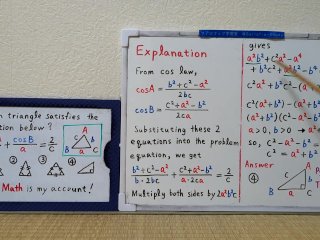 n triangle satisfies the
tion below?
cosB/a = 2/C
A
b
c
a
B
C
②
③
④
Math is my account!
Explanation
From cos law,
cosA = b²+c²-a² / 2bc
cosB = c²+a²-b² / 2ca
Substituting these 2
equations into the problem
equation, we get
b²+c²-a² / b·2bc + c²+a²-b² / a·2ca = 2/c
Multiply both sides by 2a²b²c
gives
a²b²+c²a²-a⁴
+b²c²+a²b²-b⁴
c²a²+b²c²-(a
c²(a²+b²)-(a
c²(a²+b²)-(a²+b²
a>0, b>0 → a²
so, c²-(a²+b²
c²=a²+b²
Answer
④
A
b
c
a
B
C